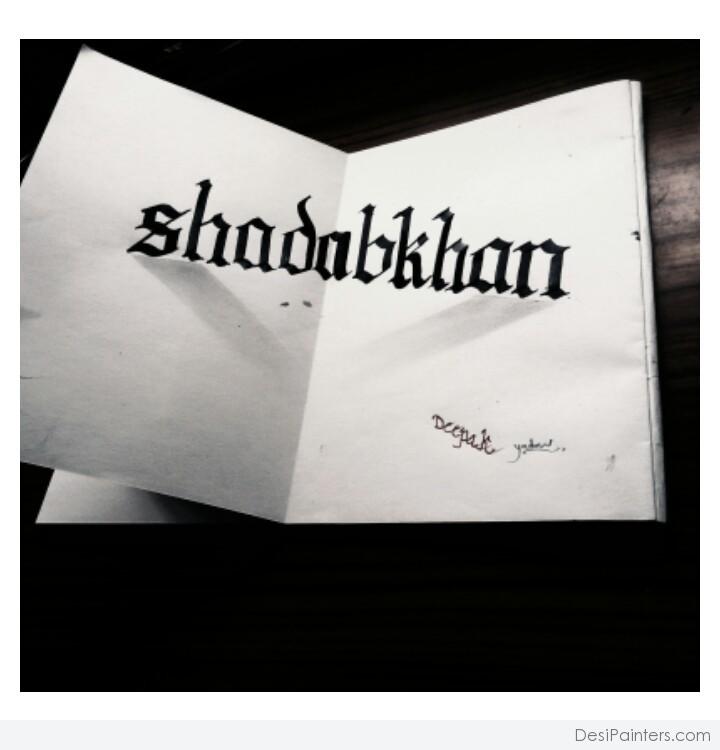 shadabkhan
Deepak yadav..
DesiPainters.com